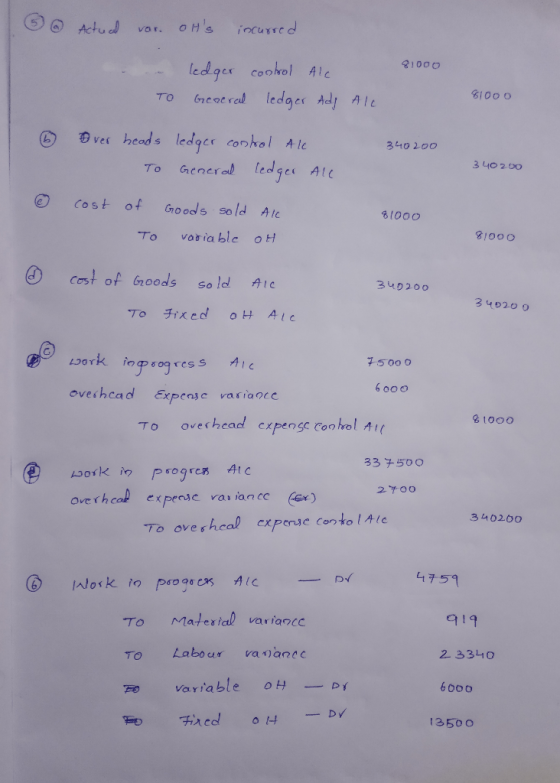 5 a Actual var. OH's incurred
ledger control A/c 81000
TO General ledger Adj A/c 81000
b Over heads ledger control A/c 340200
To General ledger A/c 340200
c cost of Goods sold A/c 81000
To variable OH 81000
d cost of Goods sold A/c 340200
TO Fixed OH A/c 340200
e work inprogress A/c 75000
overhead Expense variance 6000
TO overhead expense control A/c 81000
work in progress A/c 337500
overhead expense variance 2700
To overhead expense control A/c 340200
6 Work in progress A/c — Dr 4759
TO Material variance 919
TO Labour variance 23340
variable OH — Dr 6000
Fixed OH — Dr 13500